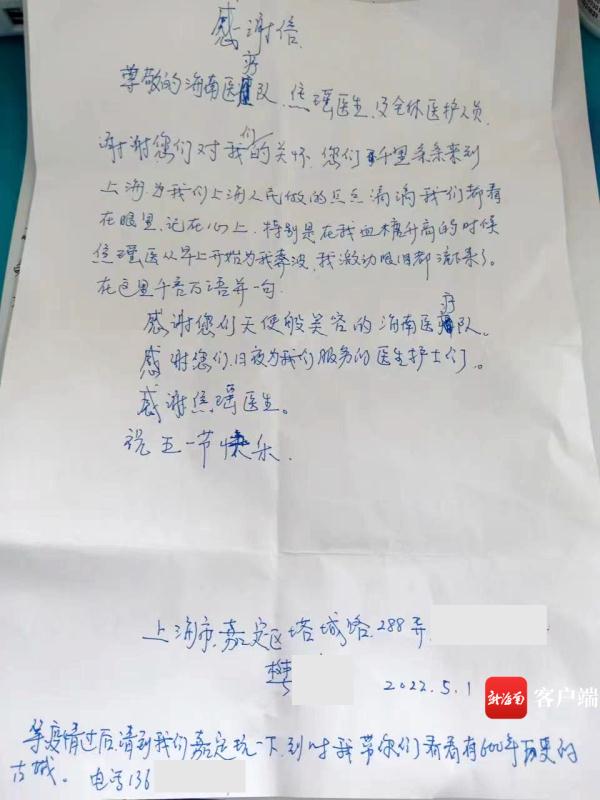 感谢信
尊敬的海南医疗队,焦瑶医生,及全体医护人员.
谢谢您们对我们的关怀.您们千里条条来到
上海.为我们上海人民做的点点滴滴我们都看
在眼里.记在心上.特别是在我血糖升高的时候
焦瑶医从早上开始为我奔波,我激动眼泪都流下来了。
在这里千言万语并一句.
感谢您们天使般笑容的海南医疗队.
感谢您们.日夜为我们服务的医生护士们。
感谢焦瑶医生。
祝五一节快乐.
上海市.嘉定区塔城路.288弄
樊
2022.5.1
等疫情过后.请到我们嘉定玩一下.到时我带你们看看有600年历史的
古城。电话136
新海南 客户端